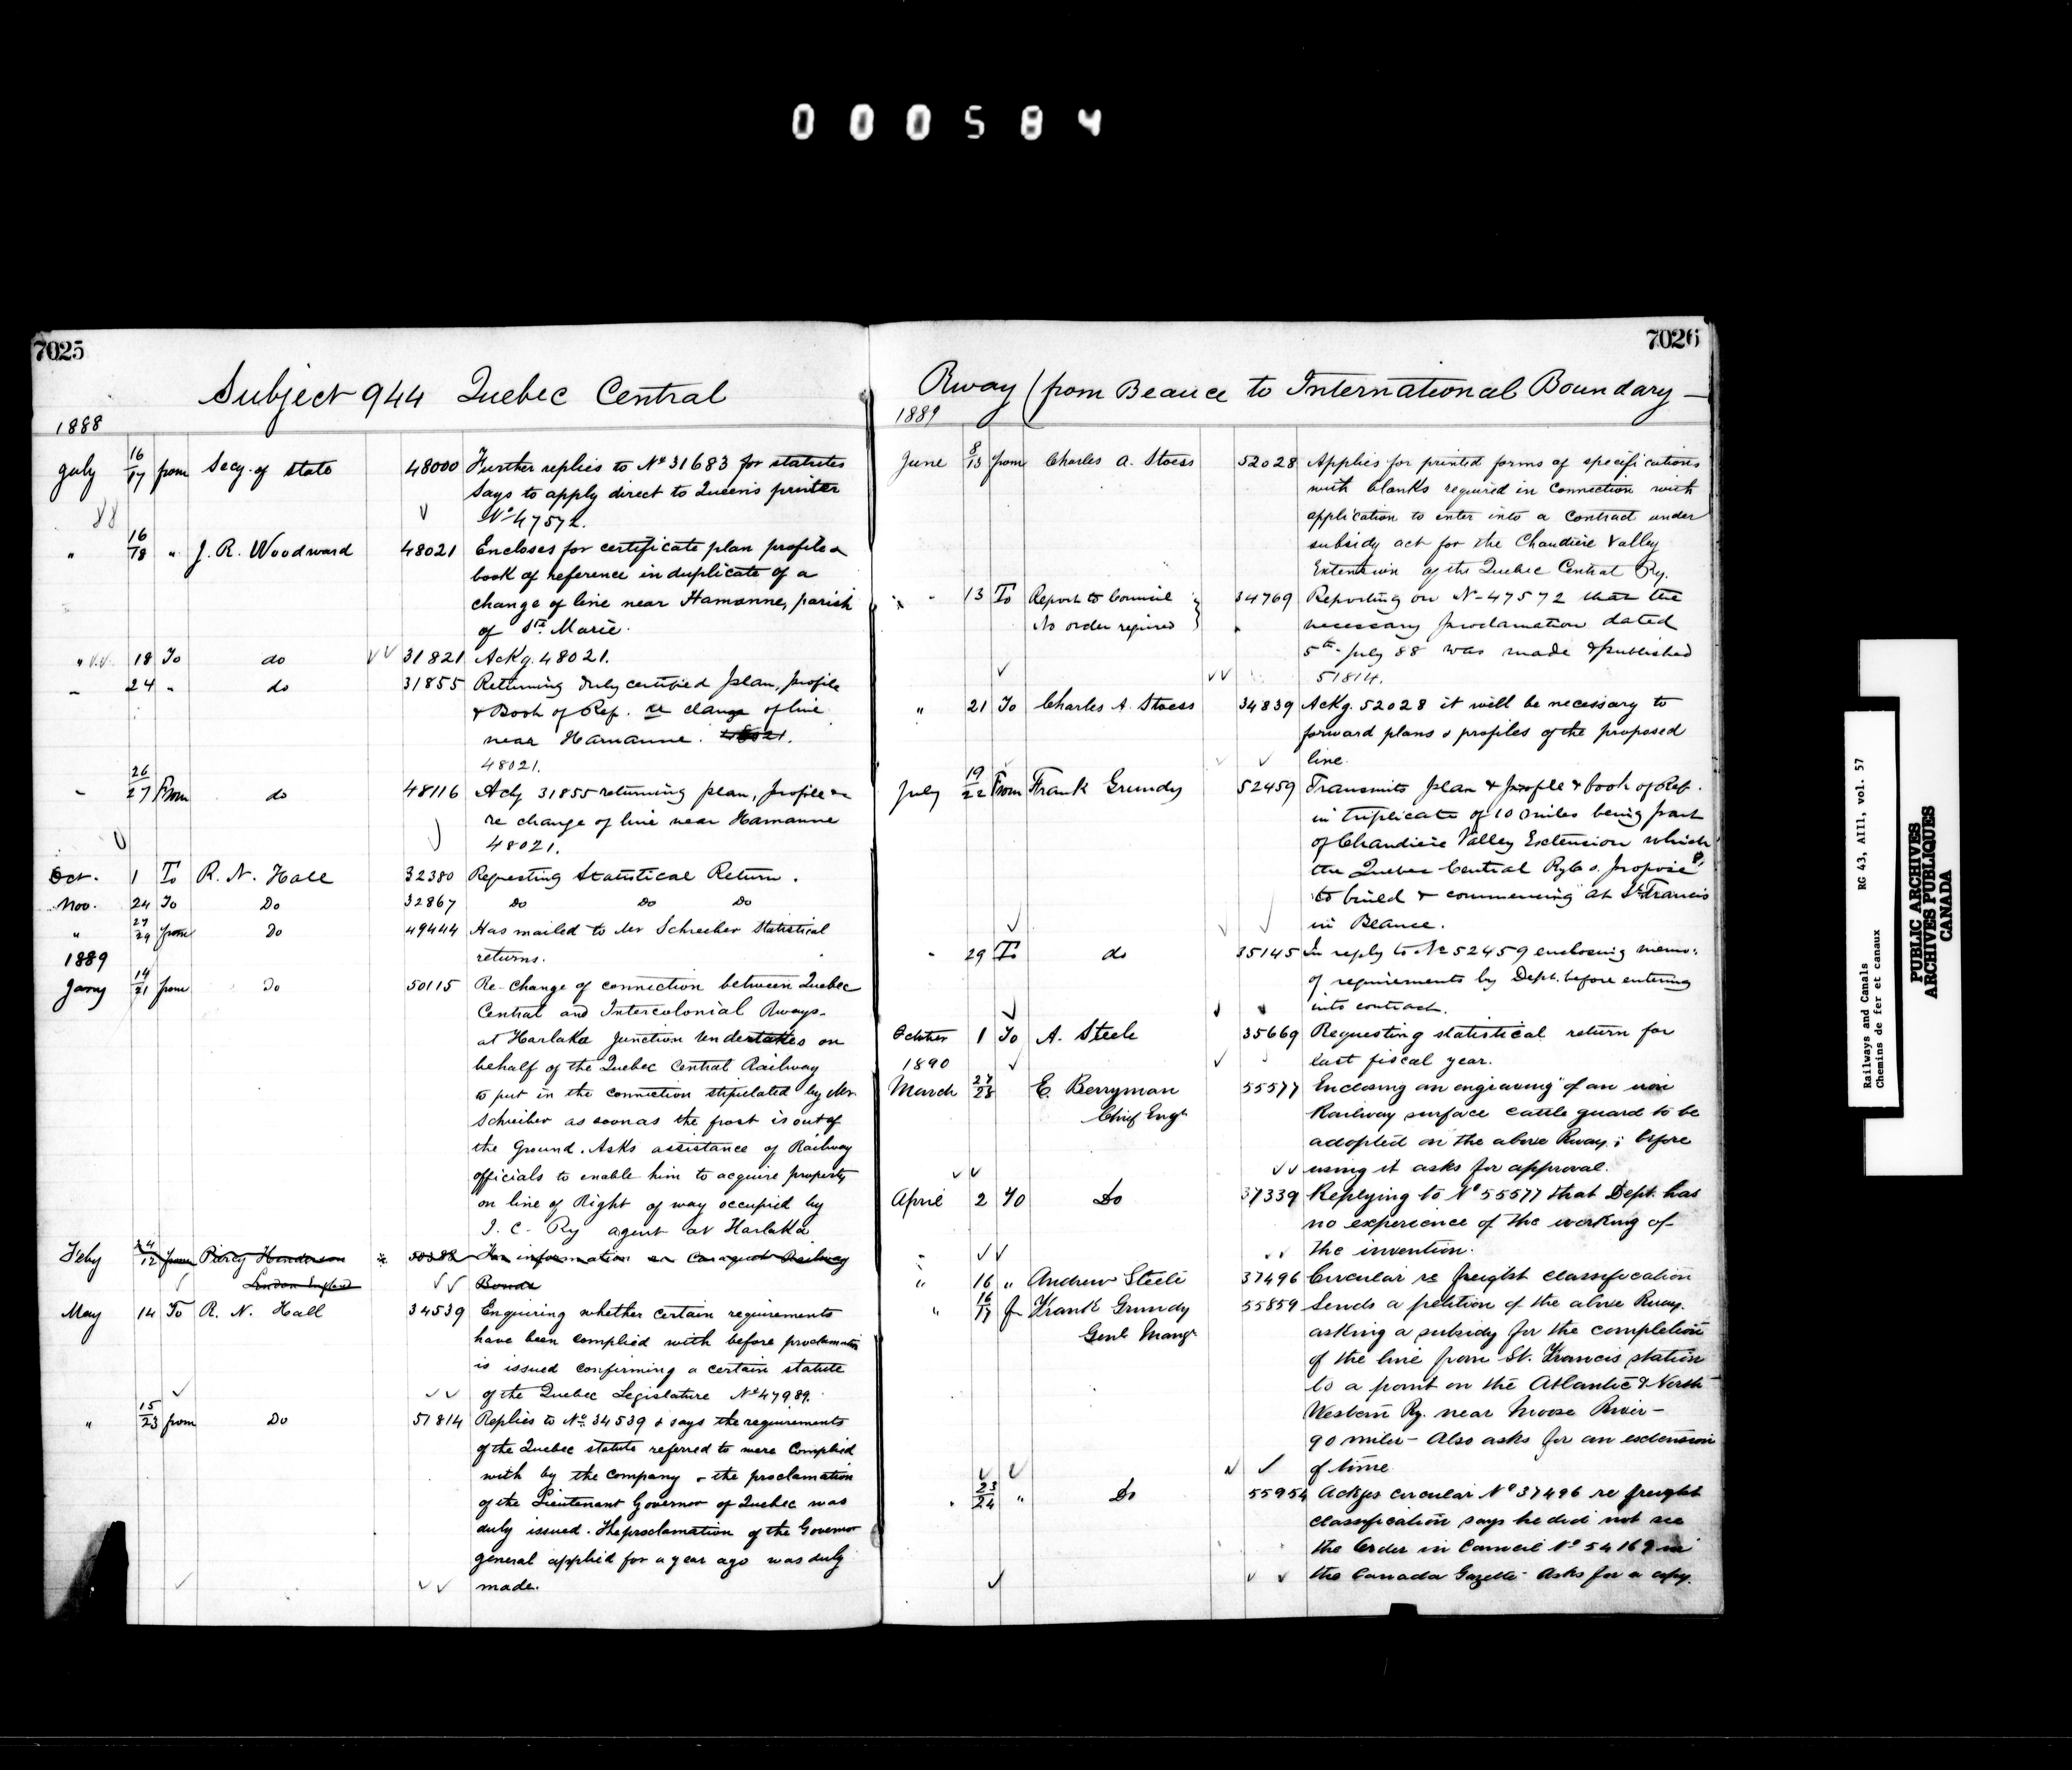 000584
7025
Subject 944 Quebec Central
1888
July 16/17 from Secy. of State 48000 Further replies to No 31683 for statutes
says to apply direct to Queen's printer
No 47572.
88
" 16/18 " J. R. Woodward 48021 Encloses for certificate plan profile &
book of reference in duplicate of a
change of line near Hamanne, parish
of Ste. Marie.
" 18 To do 31821 Ackg. 48021.
" 24 " do 31855 Returning duly certified plan, profile
& Book of Ref. re change of line
near Hamanne. 48021.
48021.
" 26/27 From do 48116 Ackg 31855 returning plan, profile &
re change of line near Hamanne
48021.
Oct. 1 To R. N. Hall 32380 Requesting Statistical Return.
Nov. 24 To Do 32867 Do Do Do
" 27/29 from Do 49444 Has mailed to Mr Schreiber Statistical
1889 returns.
Jany 14/21 from Do 50115 Re-change of connection between Quebec
Central and Intercolonial Rways-
at Harlaka Junction undertakes on
behalf of the Quebec Central Railway
to put in the connection stipulated by Mr.
Schreiber as soon as the frost is out of
the Ground. Asks assistance of Railway
officials to enable him to acquire property
on line of Right of way occupied by
I. C. Ry agent at Harlaka
Feby 12 from Percy Henderson 50388 For information re Caraquet Railway
London England Bonds
May 14 To R. N. Hall 34539 Enquiring whether certain requirements
have been complied with before proclamation
is issued confirming a certain statute
of the Quebec Legislature No 47989.
" 15/23 from Do 51814 Replies to No. 34539 & says the requirements
of the Quebec statute referred to were complied
with by the company & the proclamation
of the Lieutenant Governor of Quebec was
duly issued. The proclamation of the Governor
general applied for a year ago was duly
made.
7026
Rway (from Beauce to International Boundary —
1889
June 8/13 from Charles A. Stoess 52028 Applies for printed forms of specifications
with blanks required in connection with
application to enter into a contract under
subsidy act for the Chaudière Valley
Extension of the Quebec Central Ry.
" 13 To Report to Council 34769 Reporting on No 47572 that the
No order required necessary proclamation dated
5th July 88 was made & published
51814.
" 21 To Charles A. Stoess 34839 Ackg. 52028 it will be necessary to
forward plans & profiles of the proposed
line.
July 19/22 From Frank Grundy 52459 Transmits plan & profile & book of Ref.
in triplicate of 10 miles being part
of Chaudière Valley Extension which
the Quebec Central Ry Co. propose
to build & commencing at St Francis
in Beauce.
" 29 To do 35145 In reply to No 52459 enclosing memo:
of requirements by Dept. before entering
into contract.
October 1 To A. Steele 35669 Requesting statistical return for
1890 last fiscal year.
March 27/28 E. Berryman 55577 Enclosing an engraving of an iron
Chief Engr Railway surface cattle guard to be
adopted on the above Rway; before
using it asks for approval.
April 2 To Do 37339 Replying to No 55577 that Dept. has
no experience of the working of
the invention.
" 16 " Andrew Steele 37496 Circular re freight classification
" 16/17 f Frank Grundy 55859 Sends a petition of the above Rway.
Genl Mangr asking a subsidy for the completion
of the line from St. Francis station
to a point on the Atlantic & North
Western Ry. near Moose River-
90 miles- Also asks for an extension
of time.
" 23/24 " Do 55954 Ackges circular No 37496 re freight
classification says he did not see
the Order in Council No 54169 in
the Canada Gazette- Asks for a copy.
Railways and Canals RG 43, AIII, vol. 57
Chemins de fer et canaux
PUBLIC ARCHIVES
ARCHIVES PUBLIQUES
CANADA